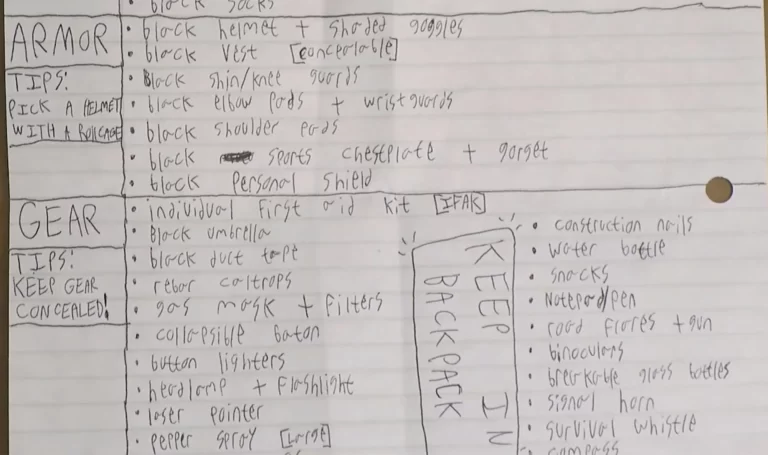 black socks
ARMOR
• black helmet + shaded goggles
• black vest [concealable]
TIPS:
PICK A HELMET
WITH A ROLLCAGE
• black shin/knee guards
• black elbow pads + wristguards
• black shoulder pads
• black sports chestplate + gorget
• black personal shield
GEAR
TIPS:
KEEP GEAR
CONCEALED!
• individual first aid kit [IFAK]
• Black umbrella
• black duct tape
• rebar caltrops
• gas mask + filters
• collapsible baton
• button lighters
• headlamp + flashlight
• laser pointer
• pepper spray [Large]
KEEP IN
BACKPACK
• construction nails
• water bottle
• snacks
• Notepad/pen
• road flares + gun
• binoculars
• breakable glass bottles
• signal horn
• survival whistle
• compass